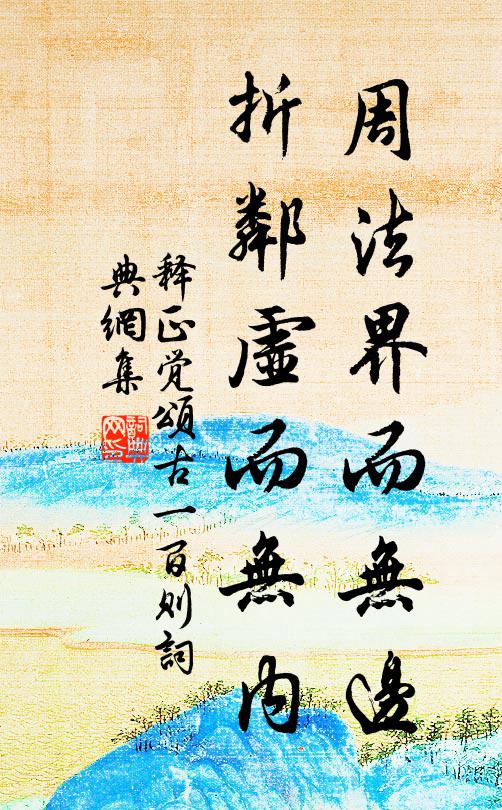 周法界而無邊
折鄰虛而無內
释正觉頌古一百则詞
典網集
詞典网